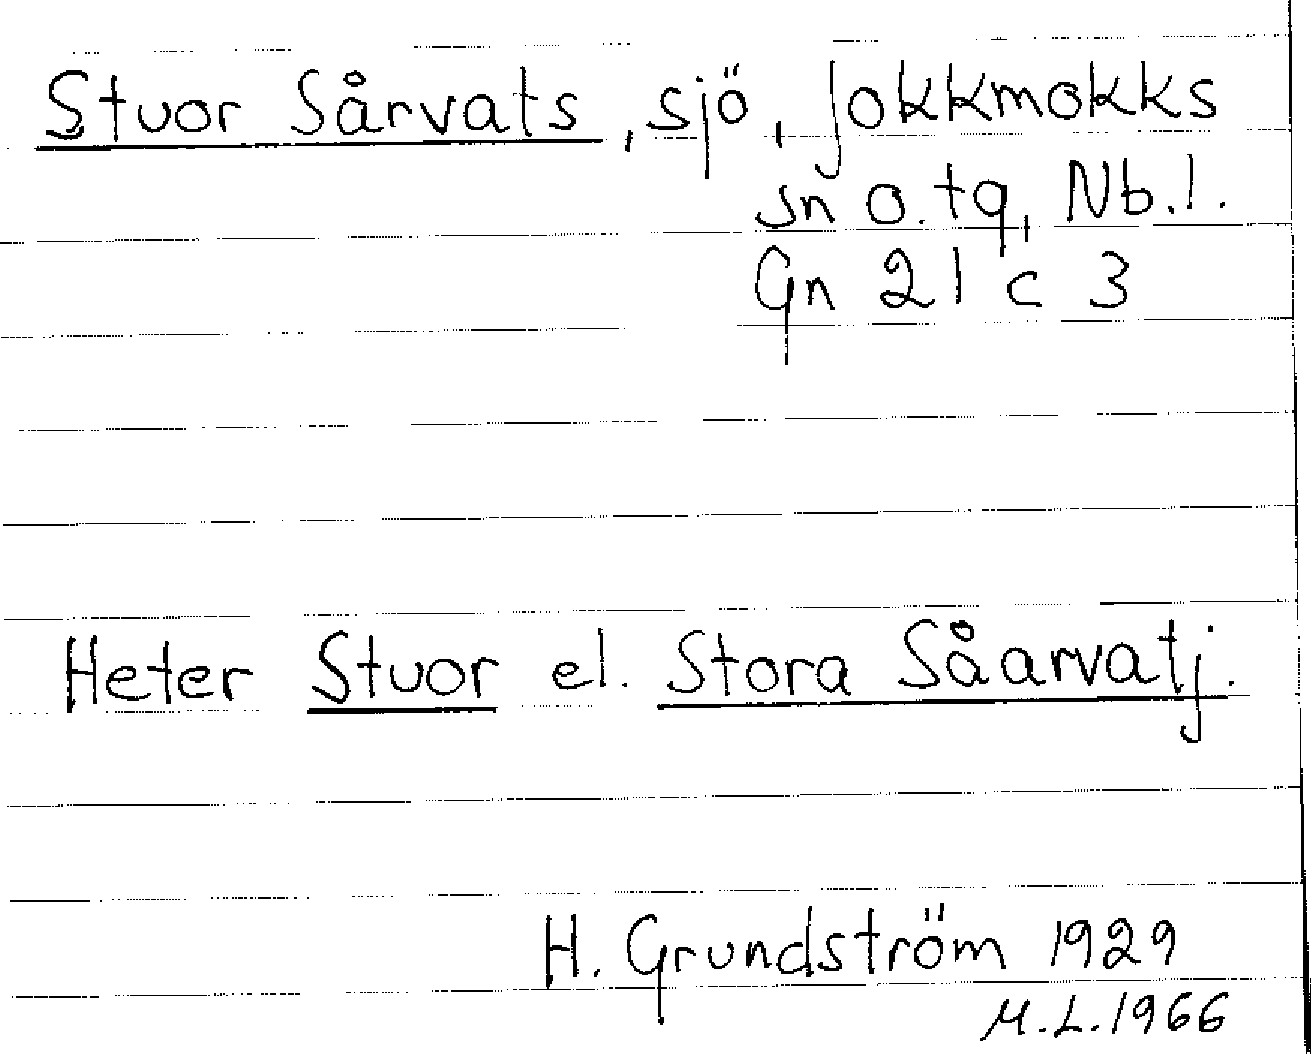 Stuor Sårvats, sjö, Jokkmokks
sn o. tg, Nb.l.
Gn 21 c 3
Heter Stuor el. Stora Såarvatj.
H. Grundström 1929
M.L. 1966